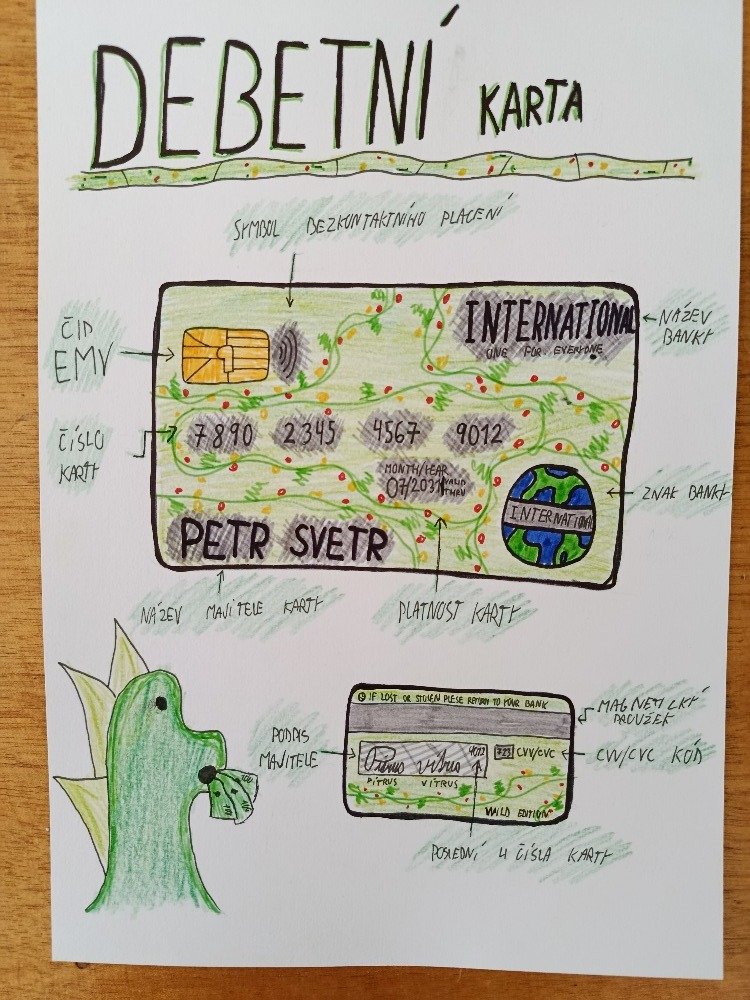 DEBETNÍ KARTA
SYMBOL BEZKONTAKTNÍHO PLACENÍ
ČIP
EMV
INTERNATIONAL
ONE FOR EVERYONE
NÁZEV
BANKY
ČÍSLO
KARTY
7890 2345 4567 9012
MONTH/YEAR
07/2031 VALID
THRU
ZNAK BANKY
INTERNATIONAL
PETR SVETR
NÁZEV MAJITELE KARTY
PLATNOST KARTY
IF LOST OR STOLEN PLESE RETURN TO YOUR BANK
MAGNETICKÝ
PROUŽEK
PODPIS
MAJITELE
Pitrus vitrus
9012
723 CVV/CVC
CVV/CVC KÓD
PITRUS VITRUS
WILD EDITION
POSLEDNÍ 4 ČÍSLA KARTY